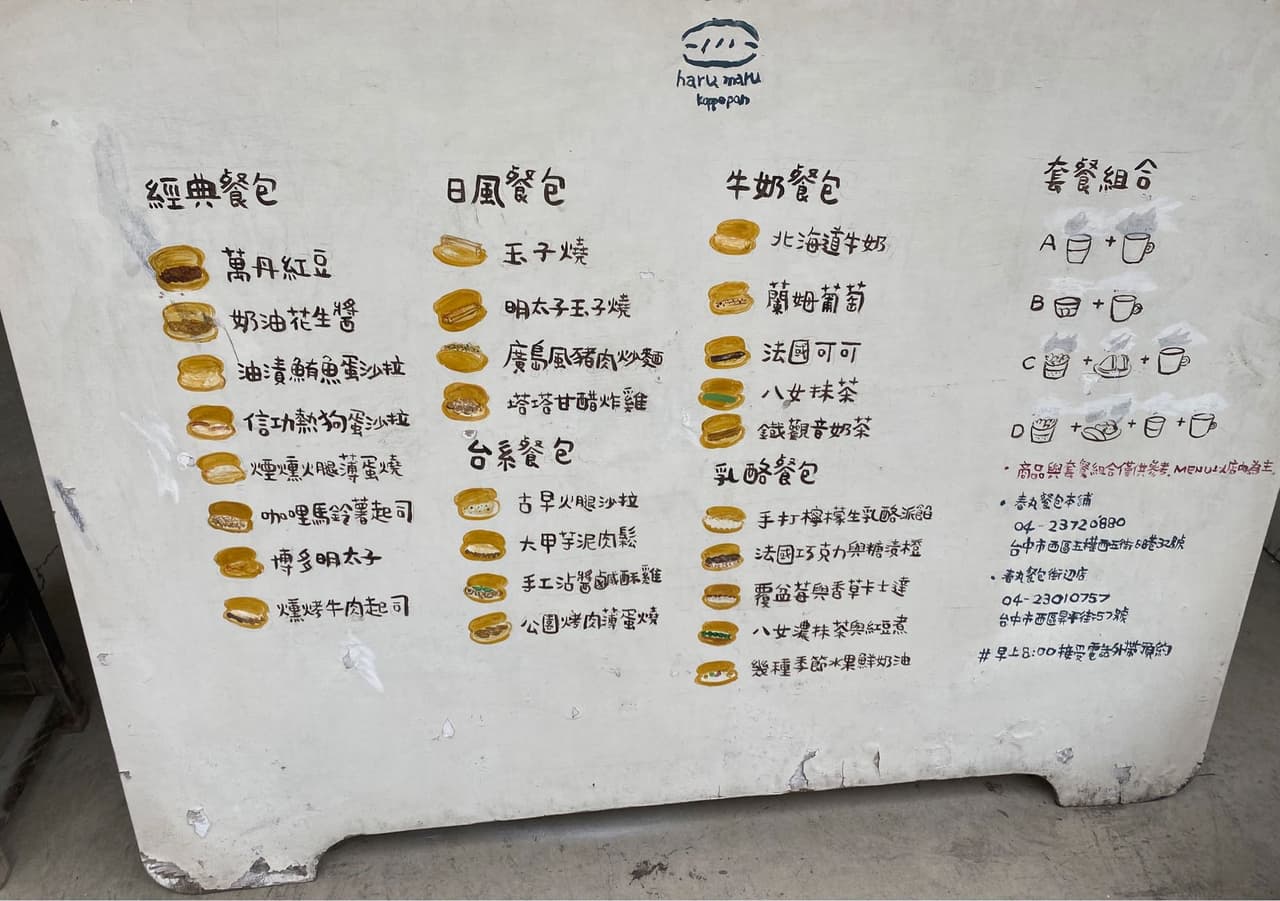 haru maru
koppepan
經典餐包
萬丹紅豆
奶油花生醬
油漬鮪魚蛋沙拉
信功熱狗蛋沙拉
煙燻火腿薄蛋燒
咖哩馬鈴薯起司
博多明太子
燻烤牛肉起司
日風餐包
玉子燒
明太子玉子燒
廣島風豬肉炒麵
塔塔甘醋炸雞
台系餐包
古早火腿沙拉
大甲芋泥肉鬆
手工沾醬鹹酥雞
公園烤肉薄蛋燒
牛奶餐包
北海道牛奶
蘭姆葡萄
法國可可
八女抹茶
鐵觀音奶茶
乳酪餐包
手打檸檬生乳酪派餡
法國巧克力與糖漬橙
覆盆莓與香草卡士達
八女濃抹茶與紅豆煮
幾種季節水果鮮奶油
套餐組合
A +
B +
C + +
D + + +
・商品與套餐組合僅供參考,MENU以店內為主
・春丸餐包本鋪
04-23720880
台中市西區五權西五街8巷32號
・春丸餐包街辺店
04-23010757
台中市西區昇平街57號
#早上8:00接受電話外帶預約